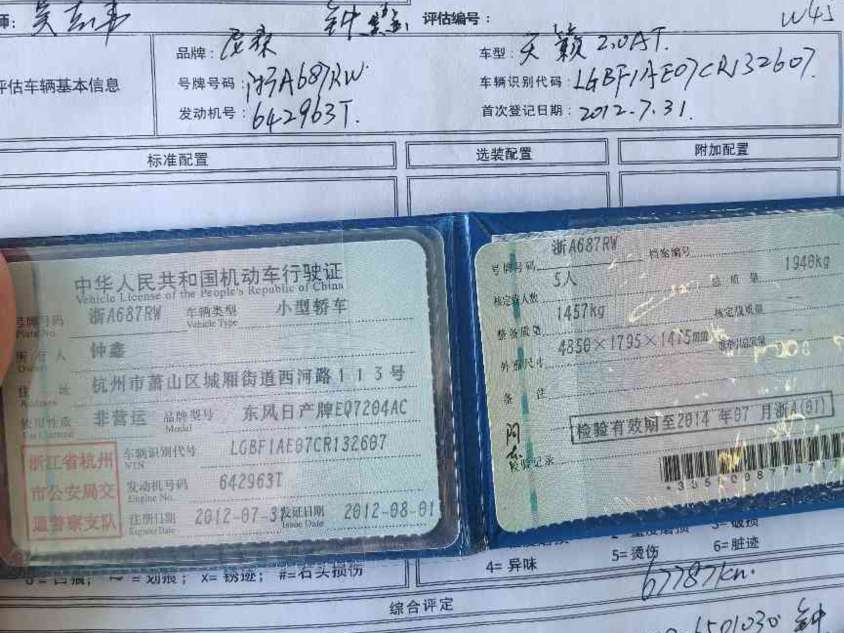 评估编号：
W45
品牌：尼桑
车型：天籁 2.0AT.
评估车辆基本信息
号牌号码：浙A687RW
车辆识别代码：LGBF1AE07CR132607.
发动机号：642963T.
首次登记日期：2012.7.31.
标准配置
选装配置
附加配置
中华人民共和国机动车行驶证
Vehicle License of the People's Republic of China
号牌号码 浙A687RW 车辆类型 小型轿车
Plate No. Vehicle Type
所有人 钟鑫
Owner
住址 杭州市萧山区城厢街道西河路113号
Address
使用性质 非营运 品牌型号 东风日产牌EQ7204AC
Use Character Model
浙江省杭州市公安局交通警察支队
车辆识别代号 LGBF1AE07CR132607
VIN
发动机号码 642963T
Engine No.
注册日期 2012-07-31 发证日期 2012-08-01
Register Date Issue Date
号牌号码 浙A687RW 档案编号
核定载人数 5人 总质量 1940kg
整备质量 1457kg 核定载质量 --
外廓尺寸 4850×1795×1475mm
备注
检验有效期至2014年07月浙A(01)
检验记录
划痕； X=锈迹； #=石头损伤
4=异味
5=烫伤
6=脏迹
67787km.
综合评定
6501030 钟